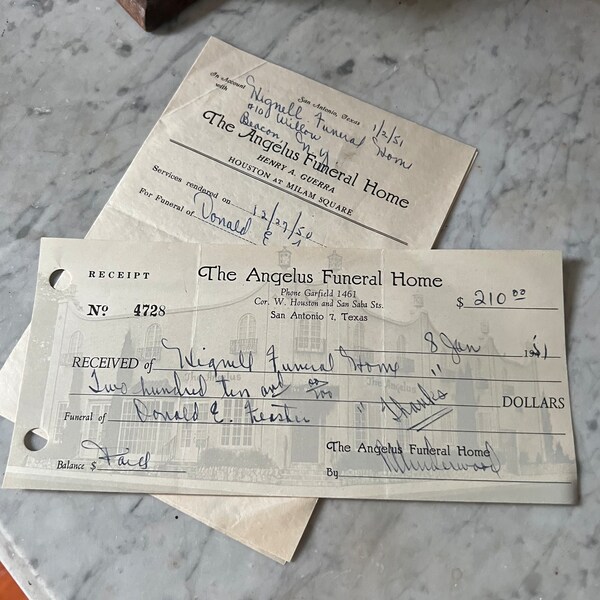 In Account with
San Antonio, Texas 1/2/51
Hignell Funeral Home
#10 Willow
Beacon N.Y.
The Angelus Funeral Home
HENRY A. GUERRA
HOUSTON AT MILAM SQUARE
Services rendered on 12/27/50
For Funeral of Donald E
RECEIPT
The Angelus Funeral Home
Phone Garfield 1461
Cor. W. Houston and San Saba Sts.
San Antonio 7, Texas
$ 210 00
No 4728
8 Jan 1951
RECEIVED of Hignell Funeral Home "
Two hundred ten and 00/100 DOLLARS
Funeral of Donald E. " Thanks
The Angelus Funeral Home
Balance $ Paid
By Underwood